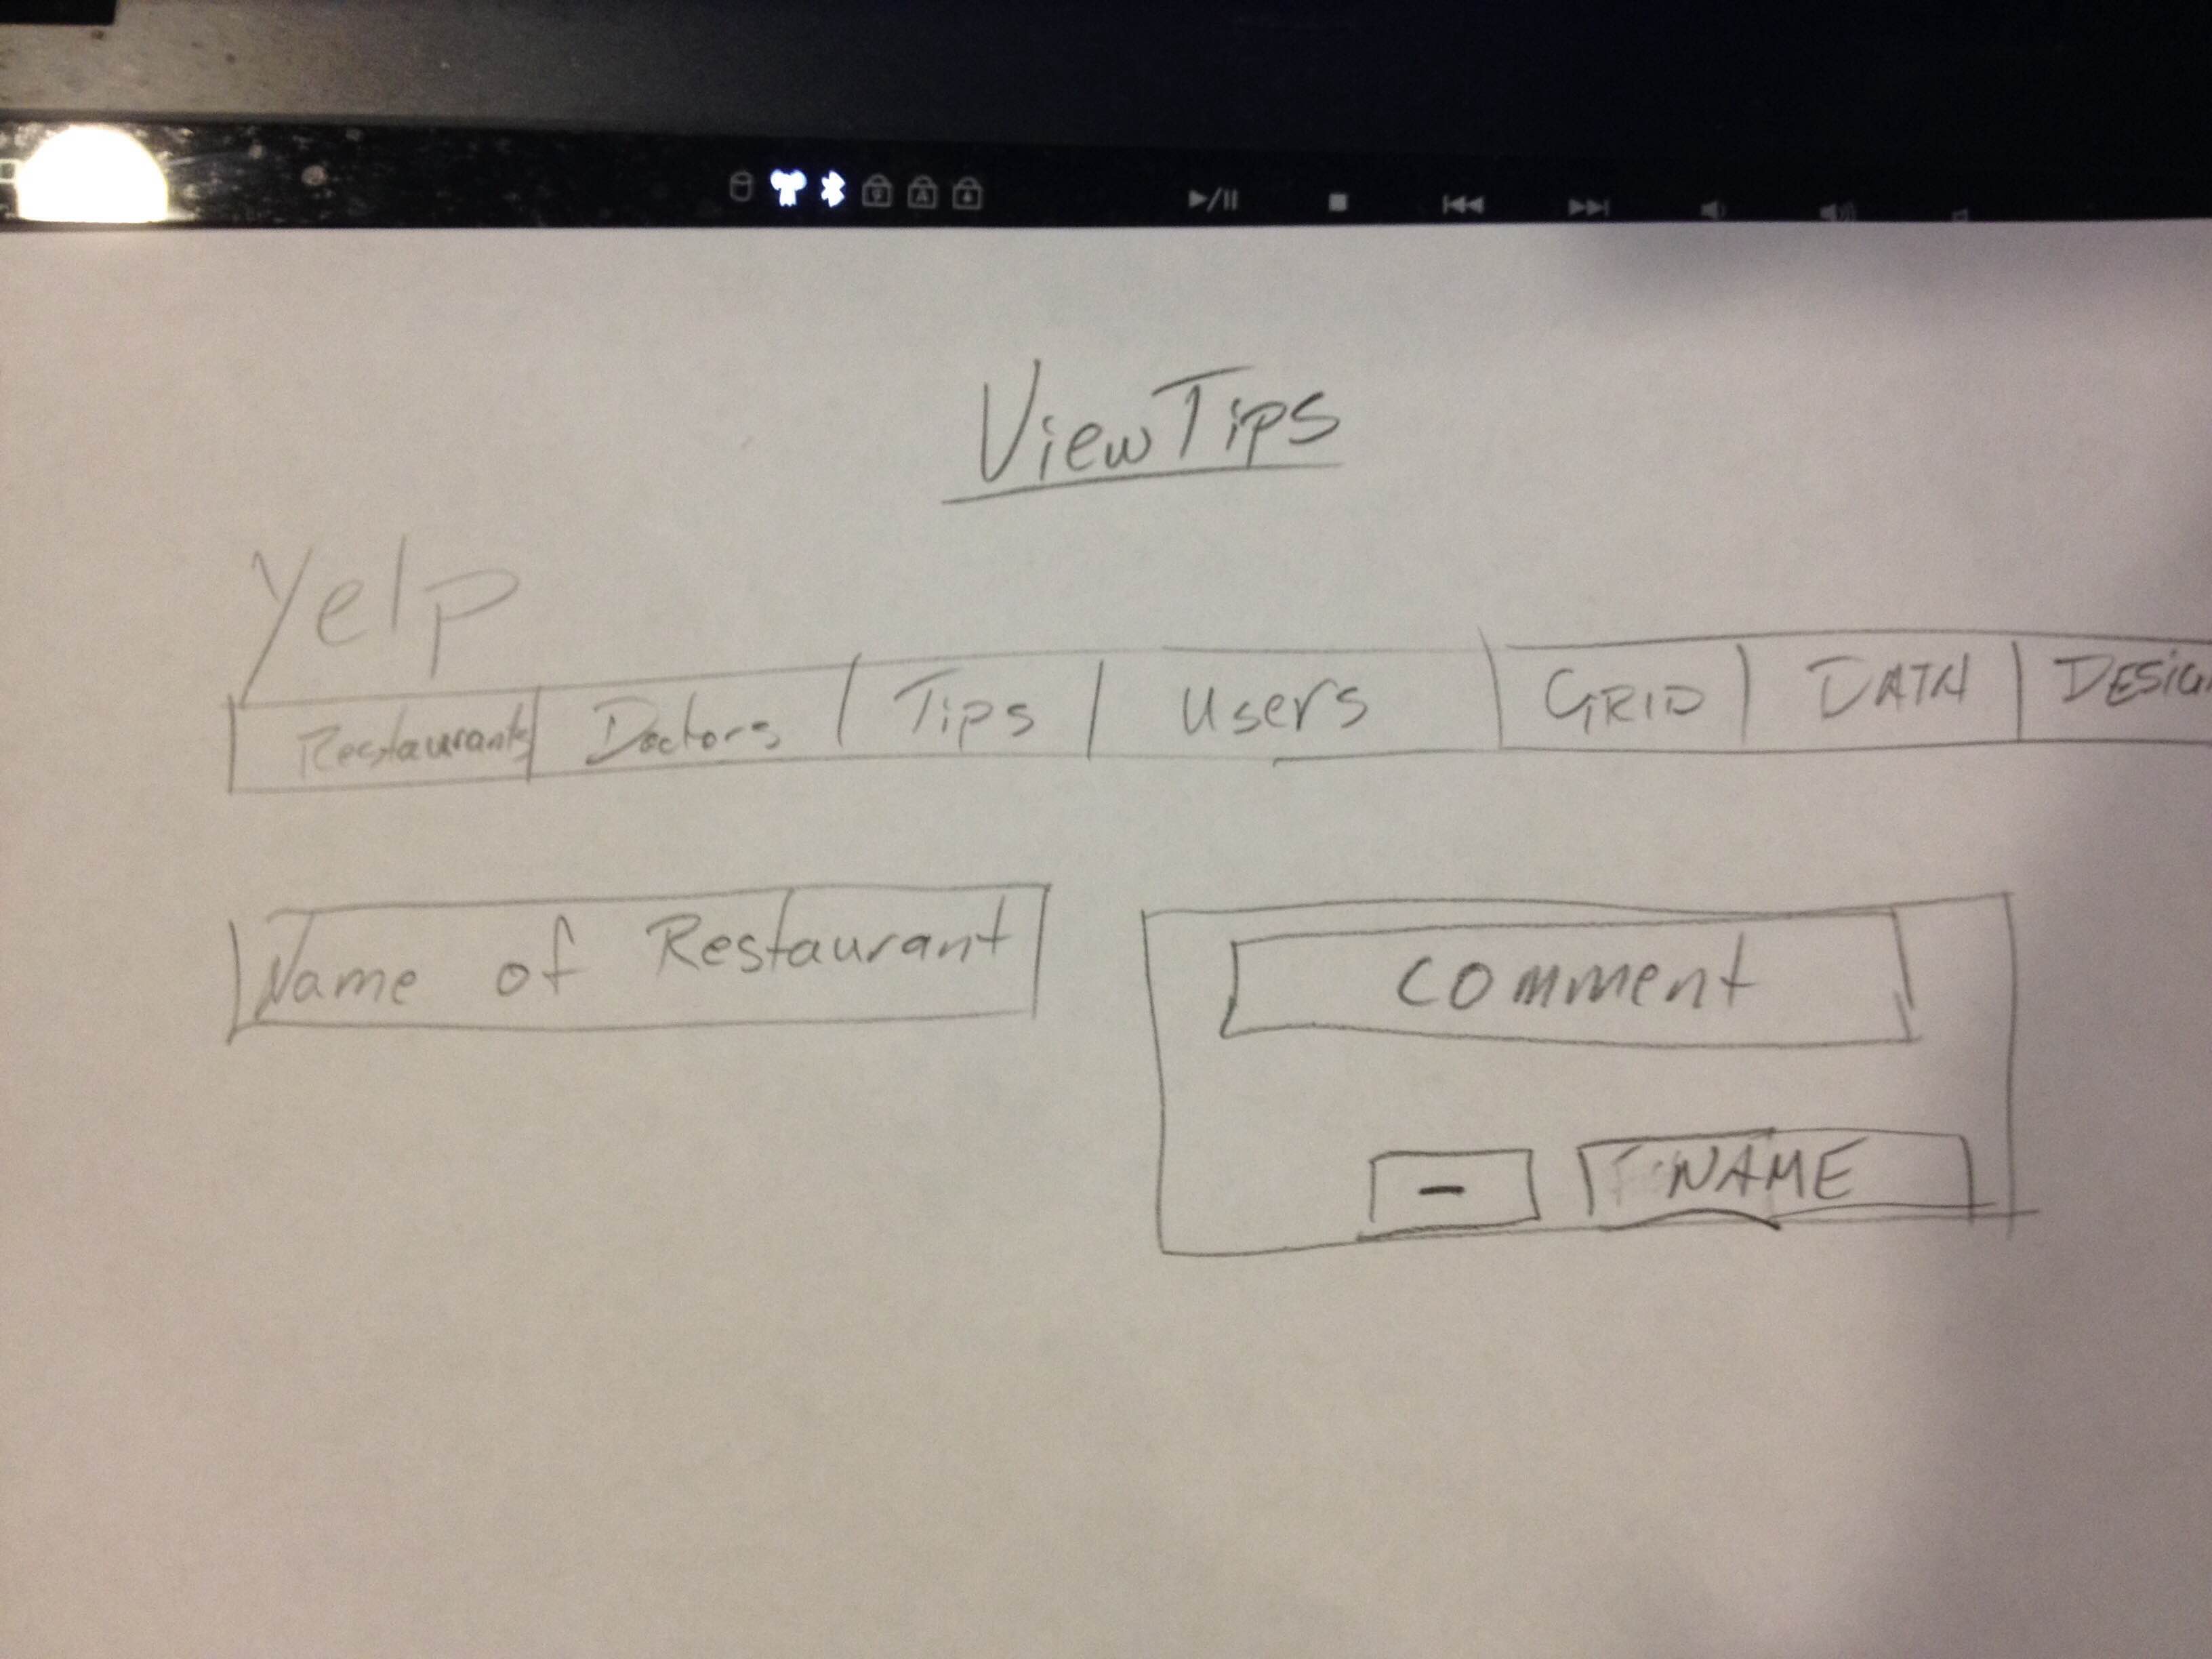 View Tips
Yelp
Restaurants Doctors Tips Users GRID DATA DESIG
Name of Restaurant
Comment
- NAME